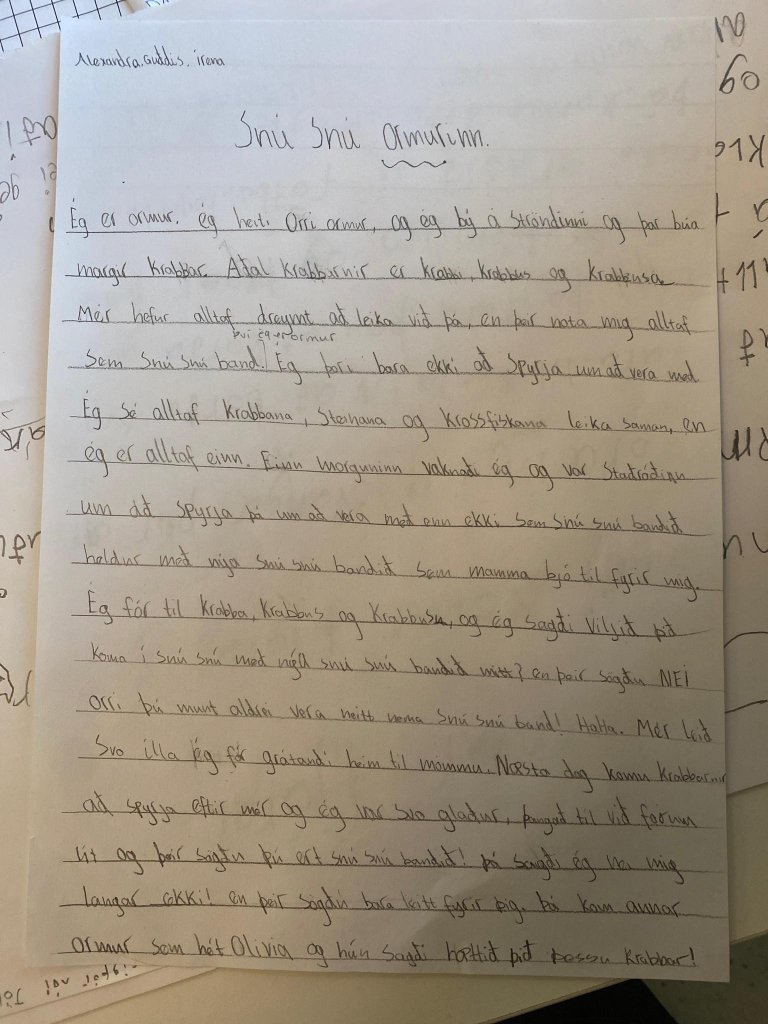 Alexandra, Guðdís, írena
Snú Snú ormurinn.
Ég er ormur. ég heiti Orri ormur, og ég bý á Ströndinni og þar búa
margir Krabbar. Aðal Krabbarnir er Krabbi, Krabbus og Krabbusa
Mér hefur alltaf dreymt að leika við þá, en þeir nota mig alltaf
því ég er ormur
Sem Snú Snú band. Ég þori bara ekki að Spyrja um að vera með
Ég Sé alltaf Krabbana, Steinana og Krossfiskana leika saman, en
ég er alltaf einn. Einn morguninn vaknaði ég og var Staðráðinn
um að Spyrja þá um að vera með enn ekki Sem Snú snú bandið
heldur með nýja Snú snú bandið Sem mamma bjó til fyrir mig.
Ég fór til Krabba, Krabbus og Krabbusu, og ég sagði Viljið þið
Koma í snú snú með nýja snú snú bandið mitt? en þeir sögðu NEI
Orri þú munt aldrei vera neitt nema Snú snú band! HaHa. Mér leið
Svo illa ég fór grátandi heim til mömmu. Næsta dag komu Krabbarnir
að spyrja eftir mér og ég var svo glaður, þangað til við forum
út og þeir sögðu þú ert snú snú bandið! þá saugði ég nei mig
langar ekki! en þeir sögðu bara leitt fyrir þig. þá kom annar
ormur som hét Olivia og hún Sagði hættið þið þessu Krabbar!